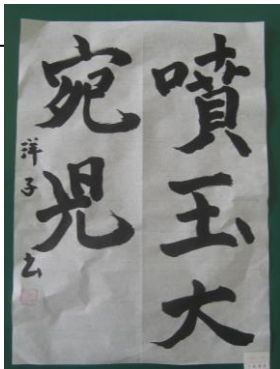 噴玉大
宛児
洋子